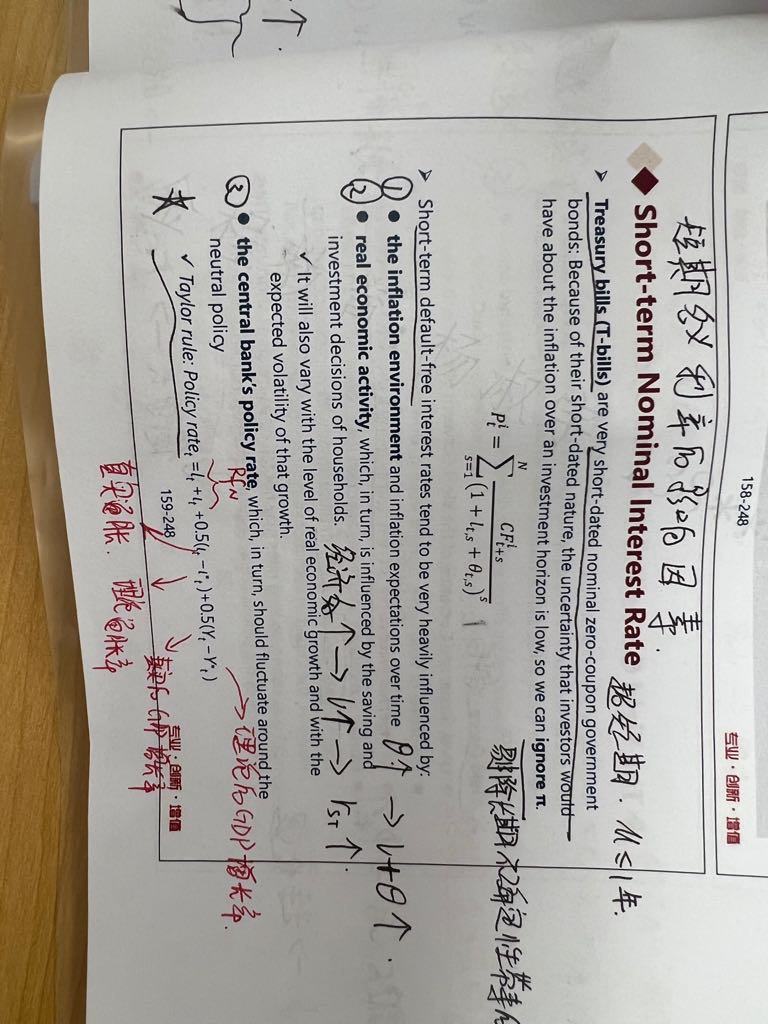 158-248
专业·创新·增值
短期名义利率的影响因素.
Short-term Nominal Interest Rate 超短期. M ≤ 1年.
➢ Treasury bills (T-bills) are very short-dated nominal zero-coupon government
bonds: Because of their short-dated nature, the uncertainty that investors would
have about the inflation over an investment horizon is low, so we can ignore π.
剔除长期不确定性带来的
P^i_t = \sum_{s=1}^{N} \frac{CF^i_{t+s}}{(1 + l_{t,s} + θ_{t,s})^s}
➢ Short-term default-free interest rates tend to be very heavily influenced by:
① ● the inflation environment and inflation expectations over time θ↑ → l+θ↑.
② ● real economic activity, which, in turn, is influenced by the saving and
investment decisions of households. 经济↑ → l↑ → r_{ST}↑.
✓ It will also vary with the level of real economic growth and with the
expected volatility of that growth.
③ ● the central bank's policy rate, which, in turn, should fluctuate around the
neutral policy
→ 理论的GDP增长率.
✓ Taylor rule: Policy rate_t = l_t + ι_t + 0.5(ι_t − ι*_t) + 0.5(Y_t − Y*_t)
159-248
专业·创新·增值
真实通胀. 理论通胀率
真实的GDP增长率